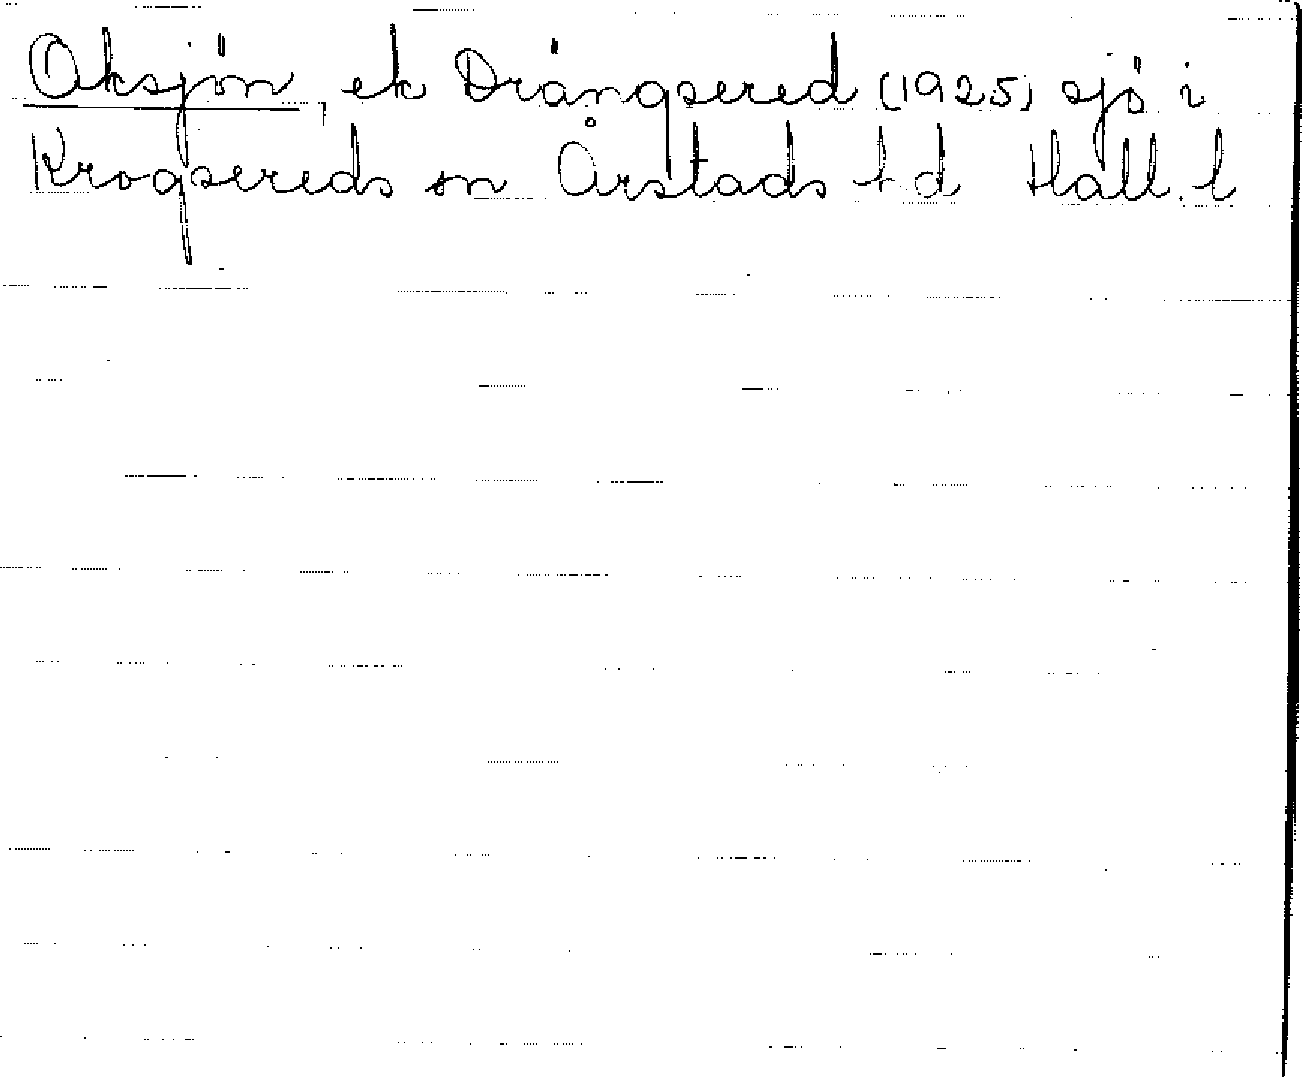 Oksjön, ek Drängsered (1925) sjö i
Krogsereds sn Årstads hd Hall. l